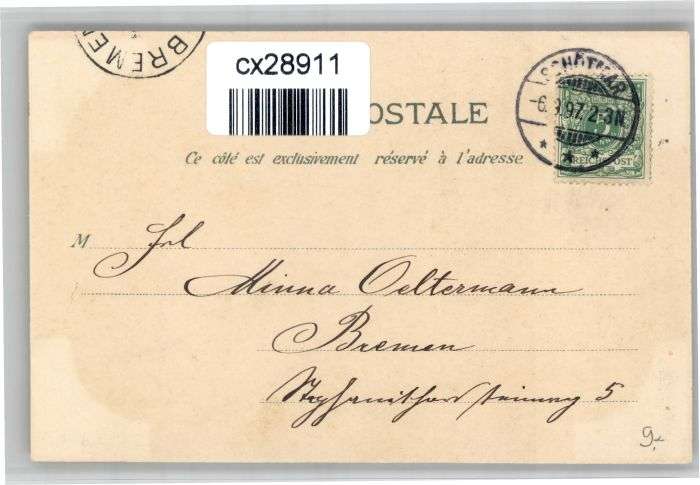 BREMEN
cx28911
OSTALE
SCHÖTMAR
-6.9.97. 2-3N
REICHSPOST
Ce côté est exclusivement réservé à l'adresse
M Frl
Minna Oeltermann
Bremen
5
9,-